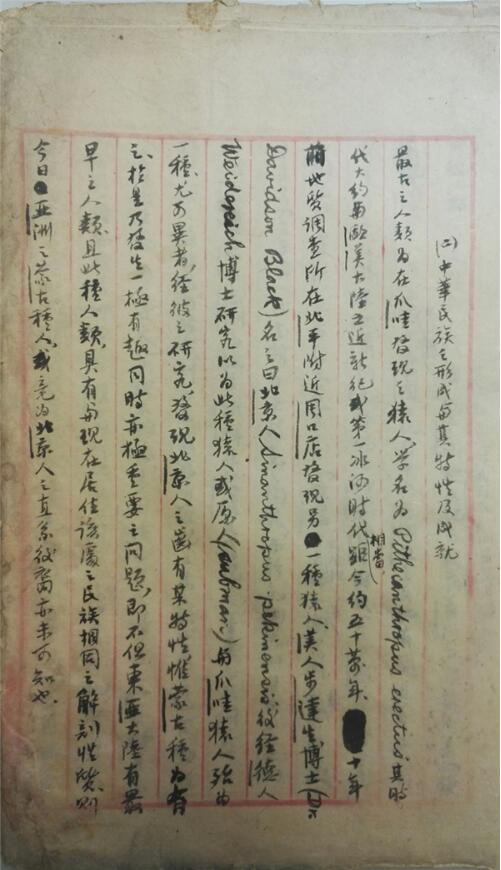 (二)中華民族之形成與其特性及成就
最古之人類為在爪哇發現之猿人,學名為Pithecanthropus erectus,其時
代大約與歐美大陸上近新紀或第一冰河時代相當距今約五十萬年、十年
前地質調查所在北平附近周口店發現另一種猿人,美人步達生博士(Dr
Davidson Black)名之曰北京人(Sinanthropus pekinensis),後經德人
Weidereich博士研究以為此種猿人或原人(subman)與爪哇猿人殆為
一種,尤可異者,經彼之研究,發現北京人之齒有某特性,惟蒙古種為有
之,於是乃發生一極有趣同時亦極重要之問題,即不但東亞大陸有最
早之人類,且此種人類,具有與現在居住該處之民族相同之解剖性質,則
今日亞洲之蒙古種人,或竟為北京人之直系後裔亦未可知也.